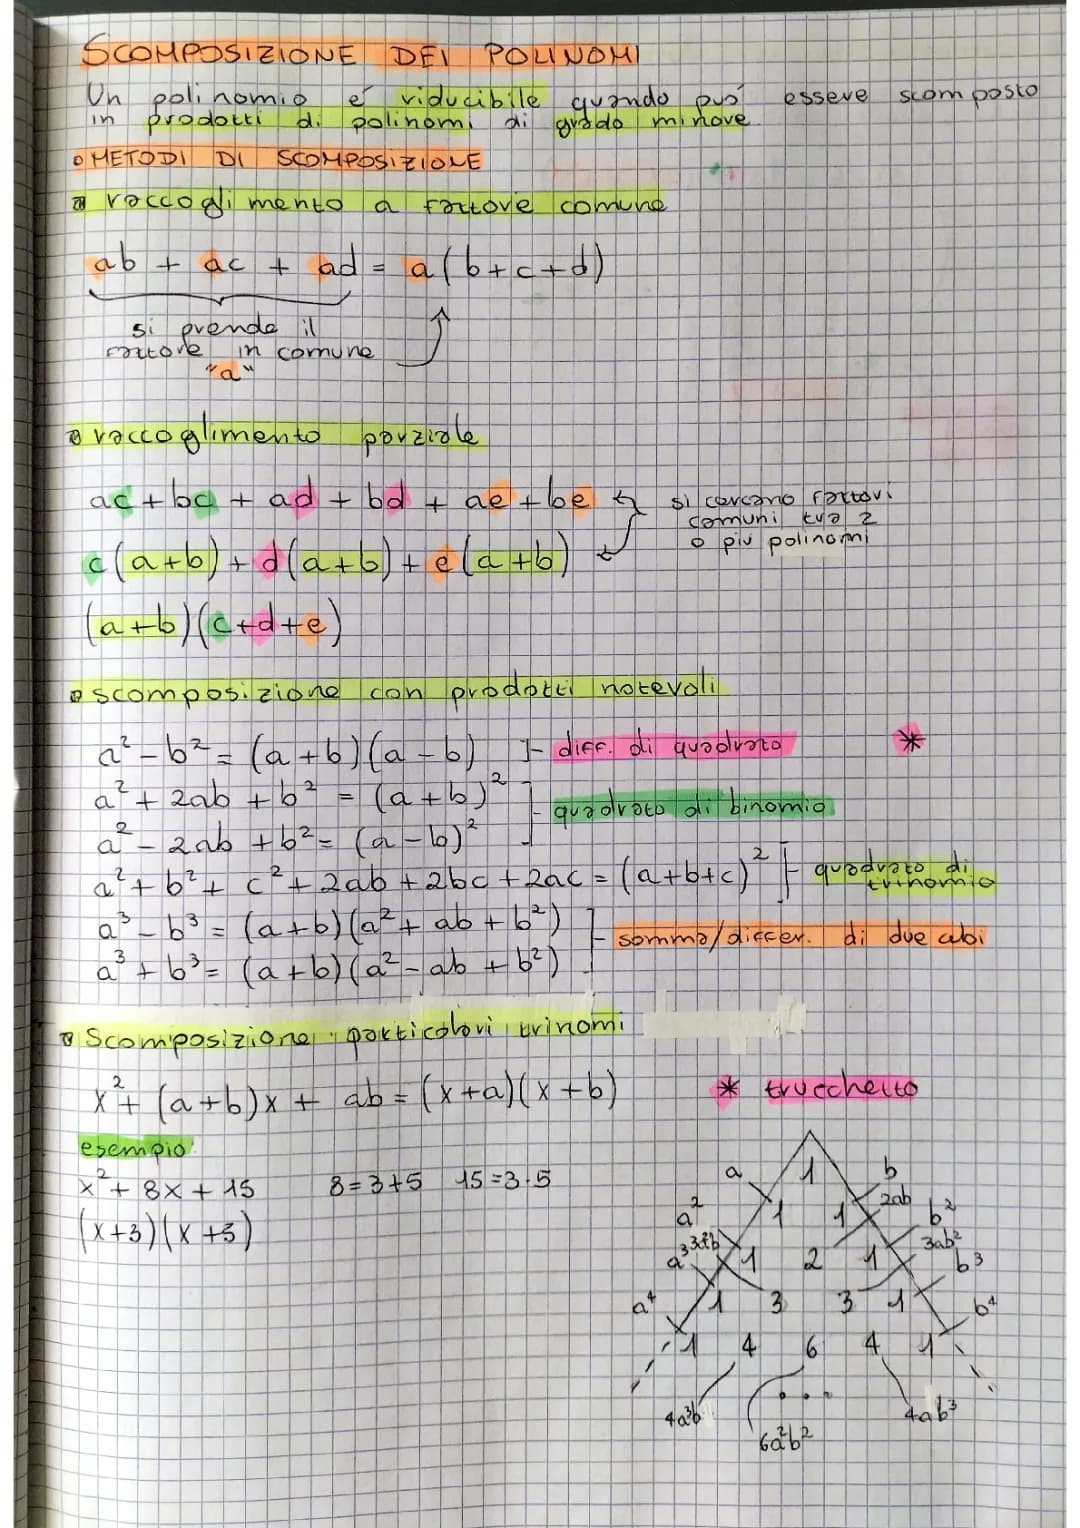 SCOMPOSIZIONE DEI POLINOMI
Un polinomio é riducibile quando puó essere scomposto
in prodotti di polinomi di grado minore.
METODI DI SCOMPOSIZIONE
raccoglimento a fattore comune
ab + ac + ad = a(b+c+d)
si prende il
fattore in comune
"a"
raccoglimento parziale
ac + bc + ad + bd + ae + be
si cercano fattori
comuni tra 2
o piu polinomi
c(a+b) + d(a+b) + e(a+b)
(a+b)(c+d+e)
scomposizione con prodotti notevoli
a² - b² = (a+b)(a-b) ]- diff. di quadrato *
a² + 2ab + b² = (a+b)²
quadrato di binomio
a² - 2ab + b² = (a-b)²
a² + b² + c² + 2ab + 2bc + 2ac = (a+b+c)² ]- quadrato di
trinomio
a³ - b³ = (a+b)(a² + ab + b²)
somma/differ. di due cubi
a³ + b³ = (a+b)(a² - ab + b²)
Scomposizione particolari trinomi
x² + (a+b)x + ab = (x+a)(x+b)
* trucchetto
esempio:
x² + 8x + 15 8=3+5 15=3·5
(x+3)(x+5)
a 1 b
a² 1 1 2ab b²
a³ 1 2 1 3ab² b³
a⁴ 1 3 3 1 b⁴
1 4 6 4 1
4a³b 6a²b² 4ab³